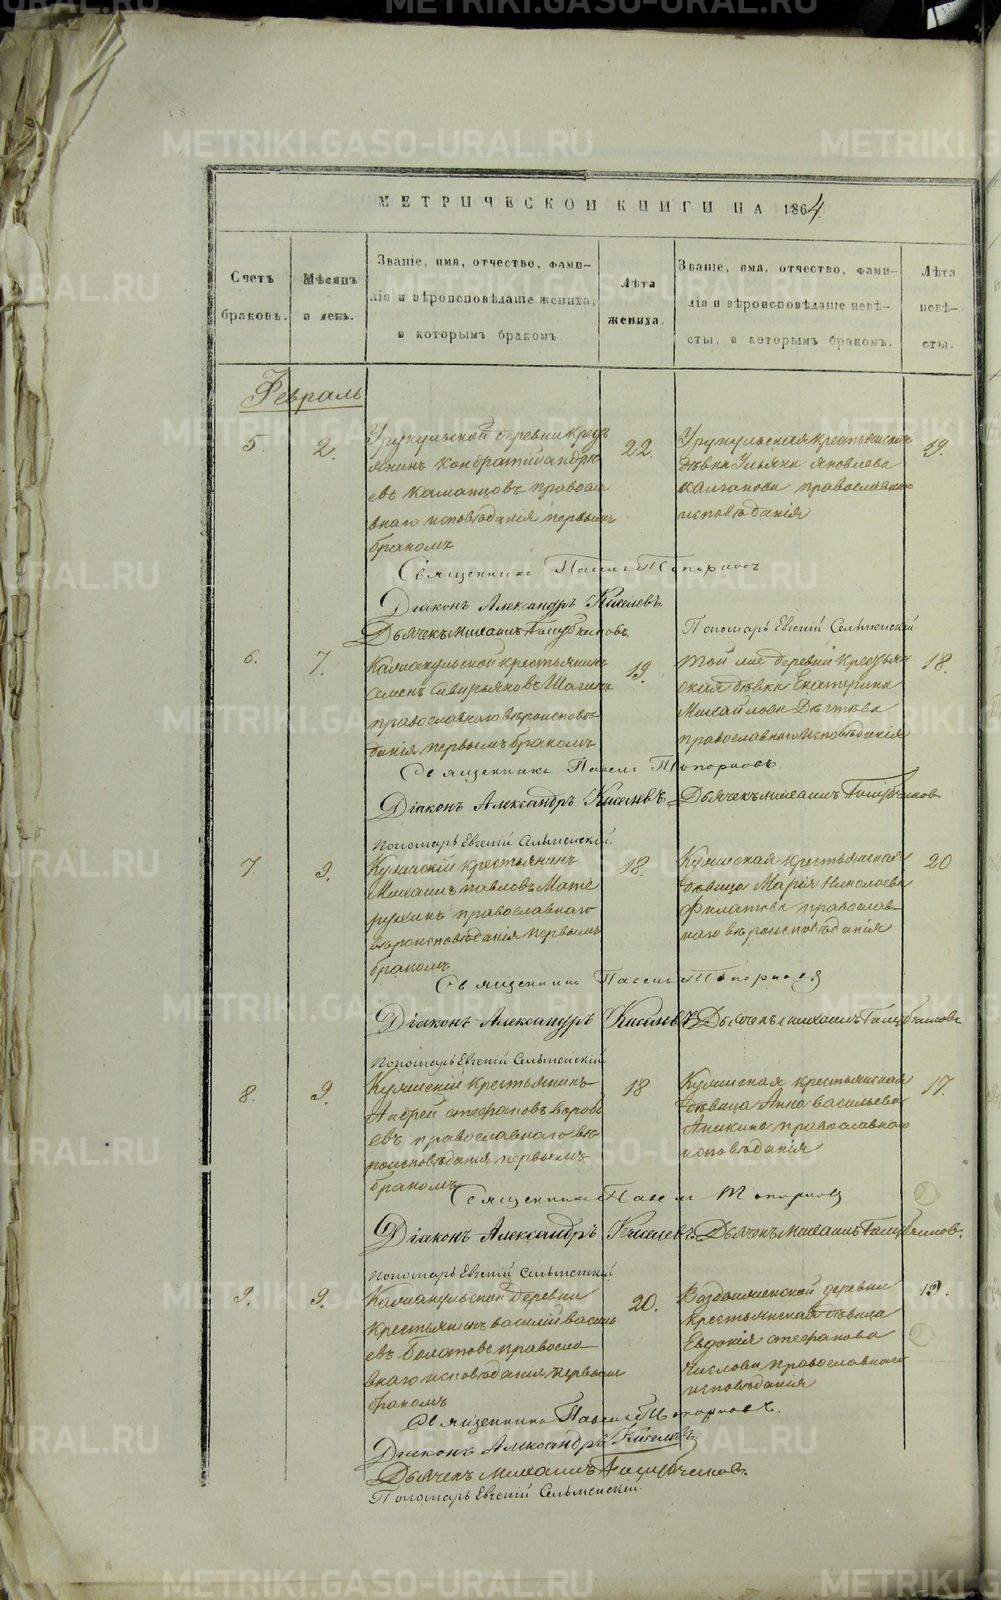 METRIKI.GASO-URAL.RU
МЕТРИЧЕСКОЙ КНИГИ НА 1864
Счетъ браковъ.
Мѣсяцъ и день.
Званіе, имя, отчество, фами-
лія и вѣроисповѣданіе жениха,
и которымъ бракомъ.
Лѣта жениха.
Званіе, имя, отчество, фами-
лія и вѣроисповѣданіе невѣ-
сты, и которымъ бракомъ.
Лѣта невѣ-
сты.
Февраль
5 2.
деревни кресть
янинъ Кондратій Андре
евъ правосла
внаго исповѣданія первымъ
бракомъ
22.
крестьянская
дѣвка Ульяна Яковлева
православнаго
исповѣданія
19.
Священникъ Павелъ Топорковъ
Діаконъ Александръ Киселевъ
Дьячекъ Михаилъ
Пономарь Евгеній Сельменскій
6. 7.
крестьянинъ
Семенъ
православнаго вѣроисповѣ
данія первымъ бракомъ
19.
Той же деревни крестьян
ская дѣвка Екатерина
Михайлова
православнаго исповѣданія
18.
Священникъ Павелъ Топорковъ
Діаконъ Александръ Киселевъ Дьячекъ Михаилъ
Пономарь Евгеній Сельменскій
7. 9.
крестьянинъ
Михаилъ Павловъ Мате
рухинъ православнаго
вѣроисповѣданія первымъ
бракомъ
18.
крестьянская
дѣвица Марія Николаева
Филатова православ-
наго вѣроисповѣданія
20
Священникъ Павелъ Топорковъ
Діаконъ Александръ Киселевъ Дьячекъ Михаилъ
Пономарь Евгеній Сельменскій
8. 9.
крестьянинъ
Андрей Стефановъ Вороб
евъ православнаго вѣ
роисповѣданія первымъ
бракомъ
18
крестьянская
дѣвица Анна Васильева
Аникина православнаго
исповѣданія
17.
Священникъ Павелъ Топорковъ
Діаконъ Александръ Киселевъ Дьячекъ Михаилъ
Пономарь Евгеній Сельменскій
9. 9.
деревни
крестьянинъ Василій Василь
евъ Болотовъ правосла
внаго исповѣданія первымъ
бракомъ
20.
Воздвиженской деревни
крестьянская дѣвица
Евдокія Стефанова
православнаго
исповѣданія
19.
Священникъ Павелъ Топорковъ.
Діаконъ Александръ Киселевъ
Дьячекъ Михаилъ
Пономарь Евгеній Сельменскій.